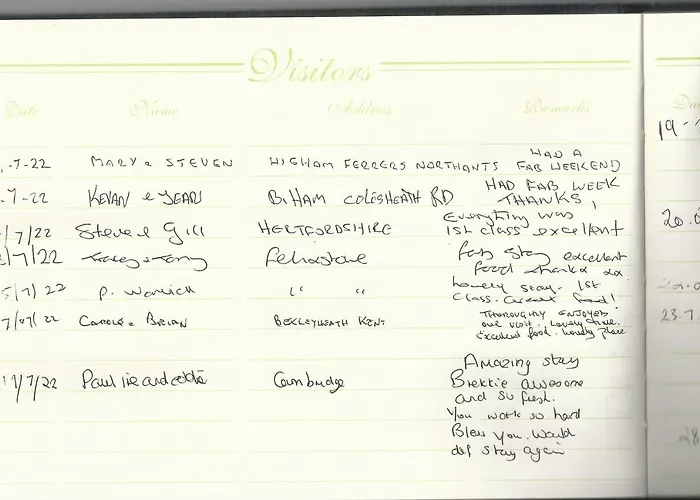 Visitors
Date Name Address Remarks
.-7-22 MARY & STEVEN HIGHAM FERRERS NORTHANTS HAD A
FAB WEEKEND
.7-22 KEVAN & JEAN B.HAM COLESHEATH RD HAD FAB WEEK
THANKS,
/7/22 Steve & Gill HERTFORDSHIRE Everything was
1st class excellent
/7/22 Felixstowe fab stay excellent
food thanks xx
5/7/22 P. Warwick " " Lovely stay. 1st
class. Great food!
7/07/22 CAROLE & BRIAN BEXLEYHEATH KENT THOROUGHLY ENJOYED
our visit. Lovely
Excellent food. Lovely place
/7/22 Paul Cambridge Amazing stay
Brekkie awesome
and so fresh.
You work so hard
Bless you. Would
def stay again
19-
20.
23.7.
28